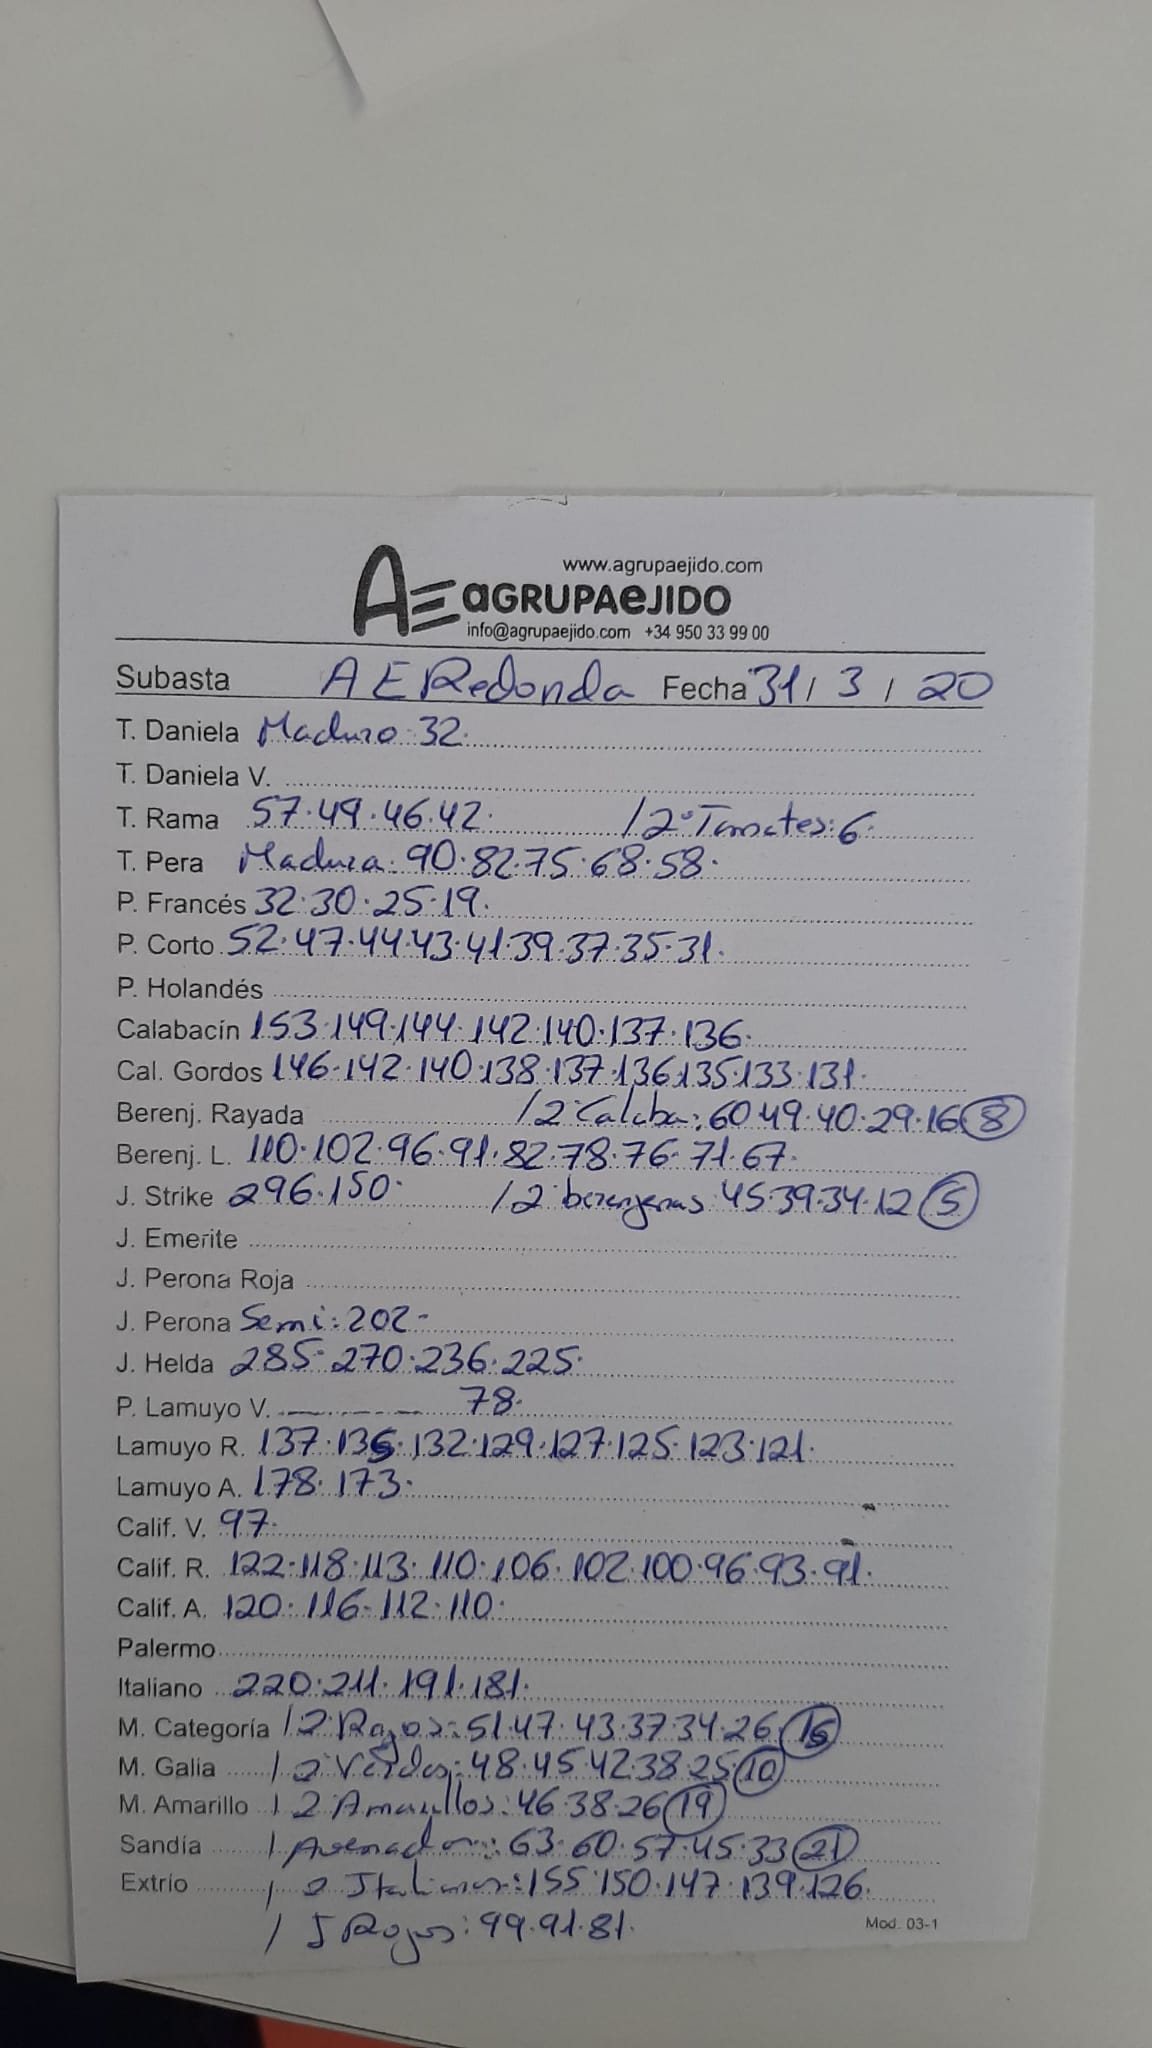 www.agrupaejido.com
AE aGRUPAeJIDO
info@agrupaejido.com +34 950 33 99 00
Subasta A E Redonda Fecha 31 / 3 / 20
T. Daniela Maduro: 32.
T. Daniela V.
T. Rama 57.49.46.42. / 2ª Tomates: 6.
T. Pera Madura: 90.82.75.68.58.
P. Francés 32.30.25.19.
P. Corto 52.47.44.43.41.39.37.35.31.
P. Holandés
Calabacín 153.149.144.142.140.137.136.
Cal. Gordos 146.142.140.138.137.136.135.133.131.
Berenj. Rayada / 2ª Calaba: 60.49.40.29.16 (8)
Berenj. L. 110.102.96.91.82.78.76.71.67.
J. Strike 296.150. / 2 berenjenas: 45.39.34.12 (5)
J. Emerite
J. Perona Roja
J. Perona Semi: 202-
J. Helda 285.270.236.225.
P. Lamuyo V. 78.
Lamuyo R. 137.135.132.129.127.125.123.121.
Lamuyo A. 178.173.
Calif. V. 97.
Calif. R. 122.118.113.110.106.102.100.96.93.91.
Calif. A. 120.116.112.110.
Palermo
Italiano 220.211.191.181.
M. Categoría / 2 Rojos: 51.47.43.37.34.26.
M. Galia / 2 Verdes: 48.45.42.38.25 (10)
M. Amarillo / 2 Amarillos: 46.38.26 (19)
Sandía / Asenador: 63.60.57.45.33 (21)
Extrío / 2 Italianos: 155.150.147.139.126.
/ J Rojos: 99.91.81.
Mod. 03-1